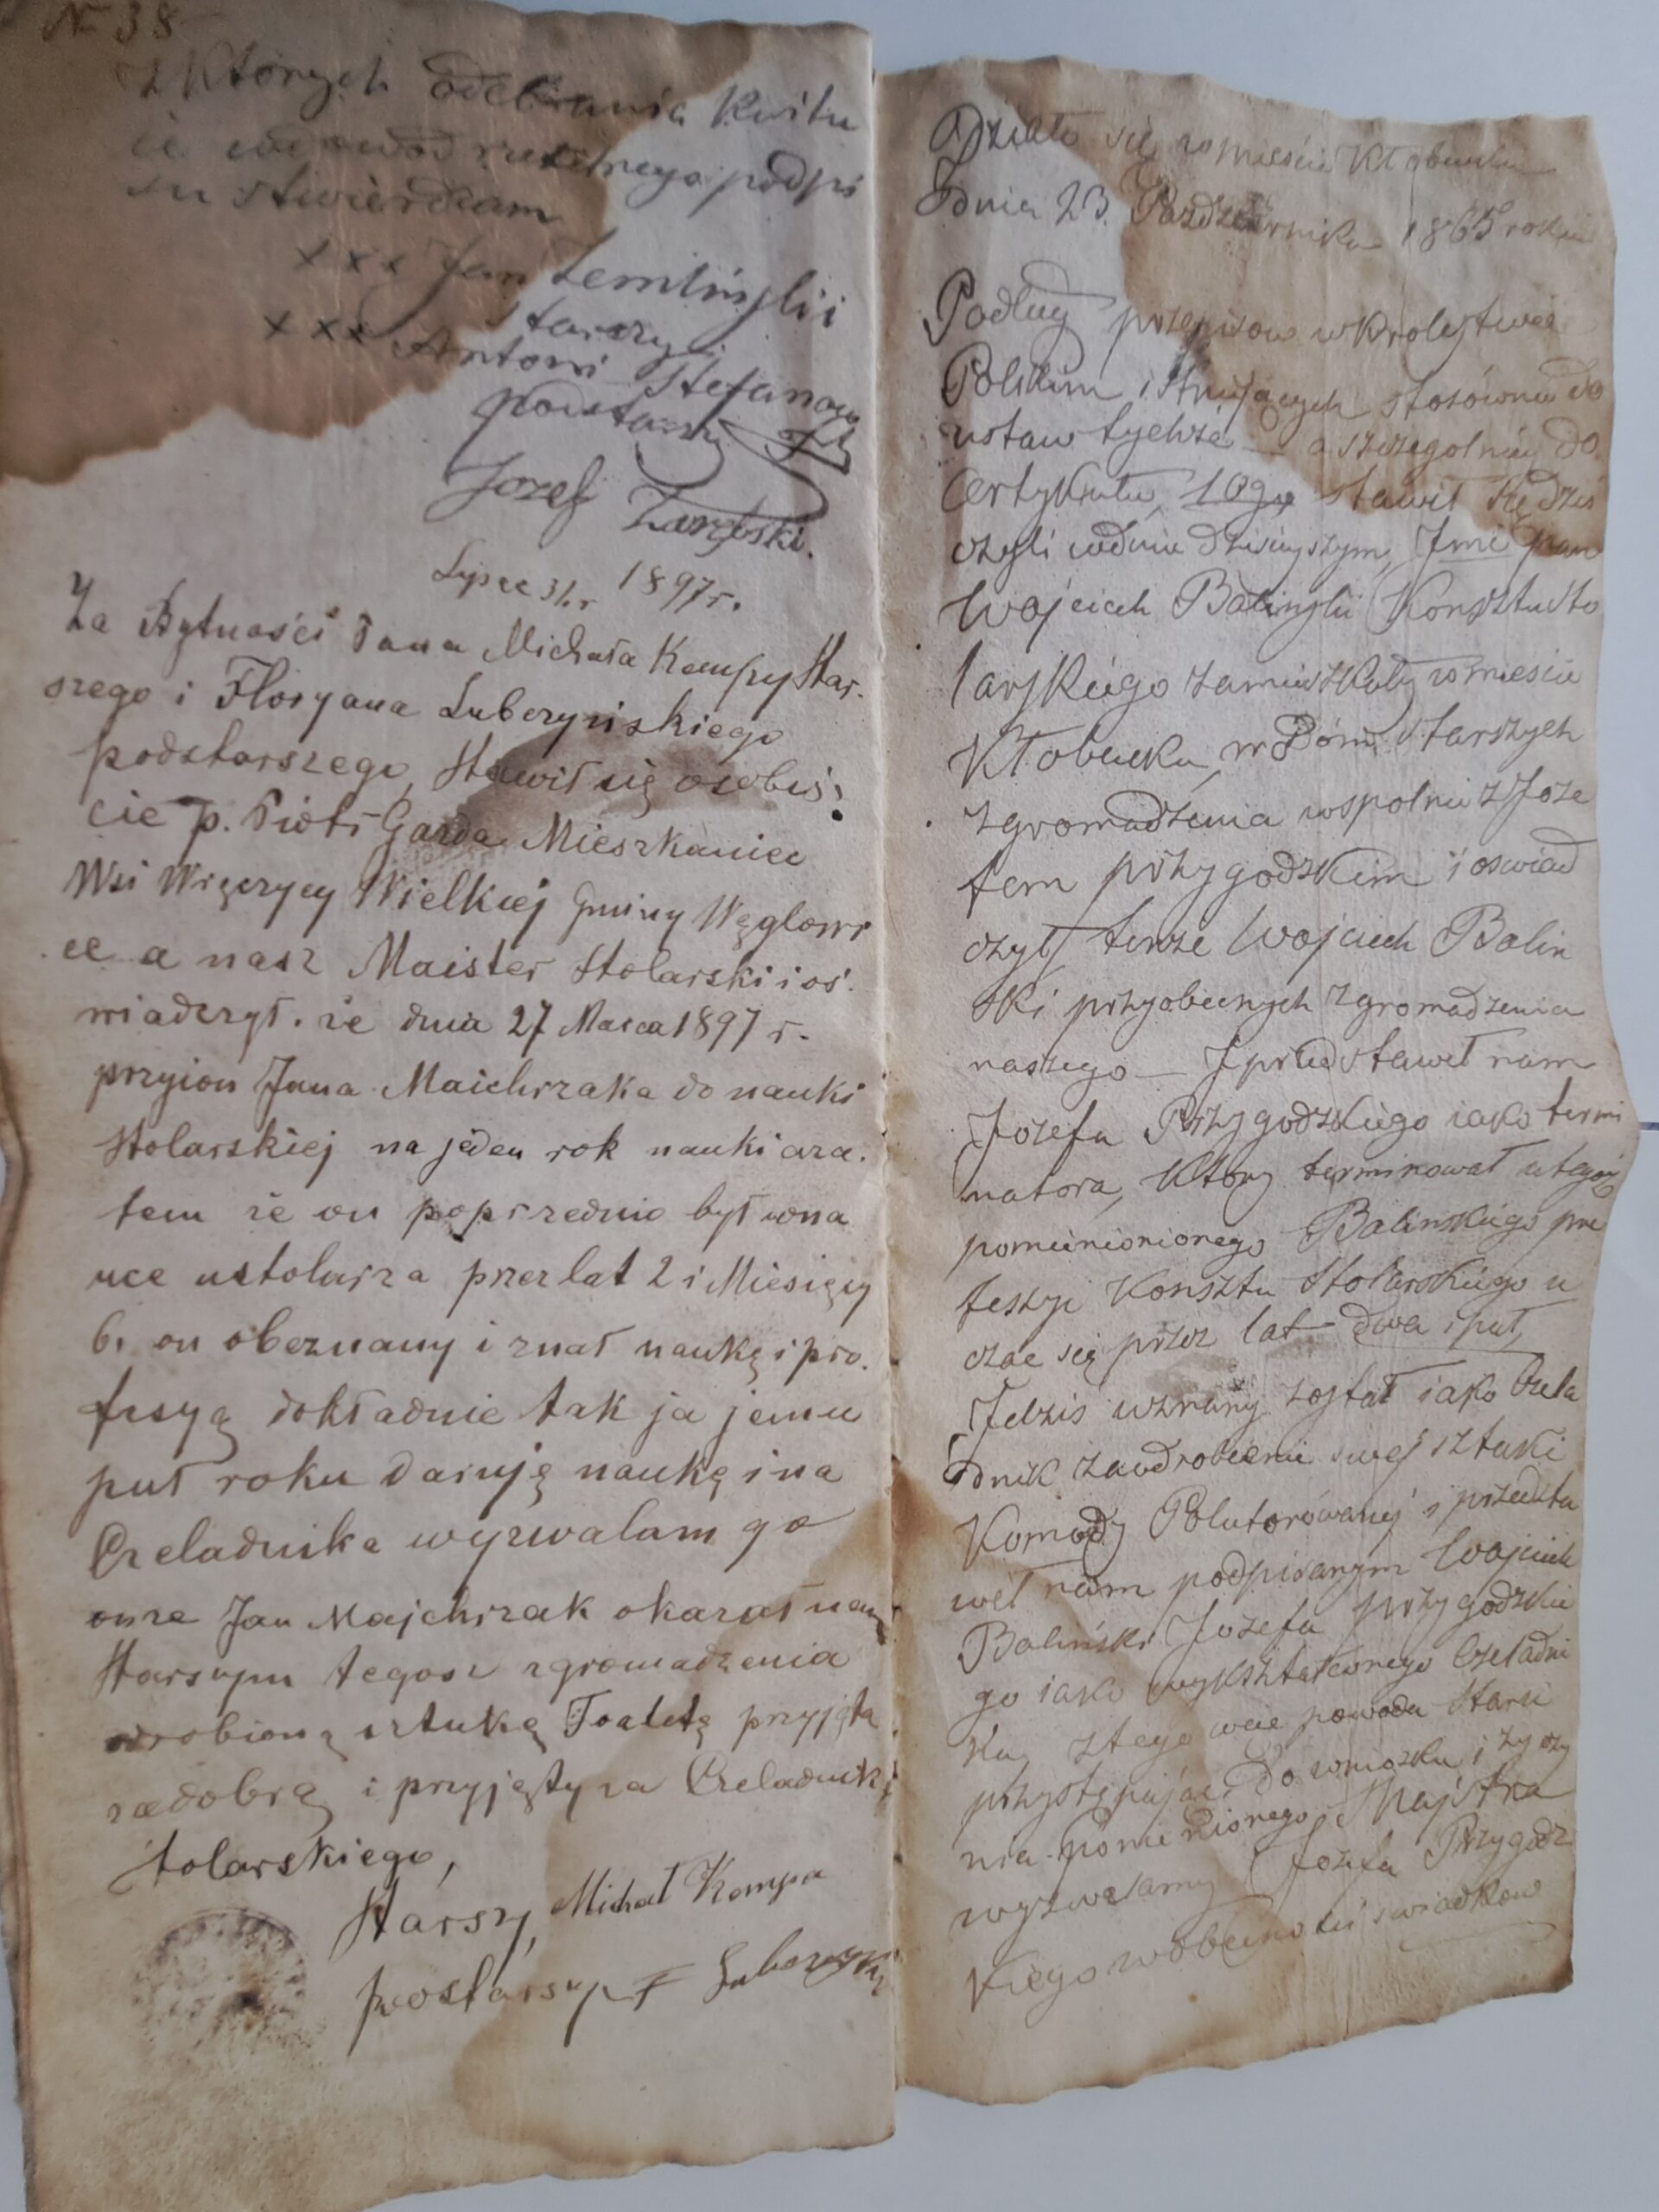 N 38
z Których odebrania Kwitu
ie wdowod rzetelnego podpi
su stwierdzam
x x x Jan Zemlińskii
Starszy
x x x Antoni Stefanow
Podstarszy
Jozef Zarębski.
Lypec 31. r 1897 r.
Za Bytności Pana Michała Kempy Star.
szego i Floryana Luberzyńskiego
podstarszego, Stawił się osobiś:
cie p. Piotr Garda Mieszkaniec
Wsi Wręczycy Wielkiej Gminy Węglowi
ce a nasz Maister Stolarski i oś.
wiadczył. że dnia 27 Marca 1897 r.
przyion Jana Maichrzaka do nauki
Stolarskiej na jeden rok nauki a za.
tem że on poprzednio był wna
uce ustolarza przez lat 2 i Miesięcy
6. on obeznany i znał naukę i pro.
fesyą dokładnie tak ja jemu
puł roku daruję naukę i na
Czeladnika wyzwalam go
onże Jan Majchrzak okazał nam
Starszym tegosz zgromadzenia
odrobioną sztukę Toaletę przyjęta
zadobrą i przyjęty za Czeladnika
Stolarskiego,
Starszy, Michał Kempa
podstarszy F Luberzyńs
Działo się wmieście Kłobucku
Dnia 23. Pazdziernika 1865 roku
Podług przepisow w Krolestwie
Polskim istniejących stosównie do
ustaw tychże – a szczegolniey do
Certykutu, 109go stawił się dziś
czyli wdniu dzisieyszym, Jmć pan
Woyciech Balinskii Konsztu Sto
larskiego zamieszkały wmieście
Kłobucku, w Dóm Starszych
zgromadzenia wspolnie z Joze
fem przygodzkim i oswiad
czył tenże Woyciech Balin
ski przyobecnych zgromadzenia
naszego – I przedstawił nam
Jozefa Przygodzkiego iako termi
natora, Ktory terminował utegoż
pomienionionego Balinskiego pro
feszyi Konsztu Stolarskiego u
cząc się przez lat dwa i puł,
I dziś uznany został iako Czela
dnik zawdrobienie swej sztuki
Komody Politorówanej i przedsta
wił nam podpisanym Woyciech
Baliński Jozefa przygodzkie
go iako wykształconego Czeladni
ka, ztego wiec powodu Starsi
przystępując do wniosku i życzy
nia pomienionego Majstra
wyzwalamy Jozefa Przygodz
kiego wobecności swiadkow